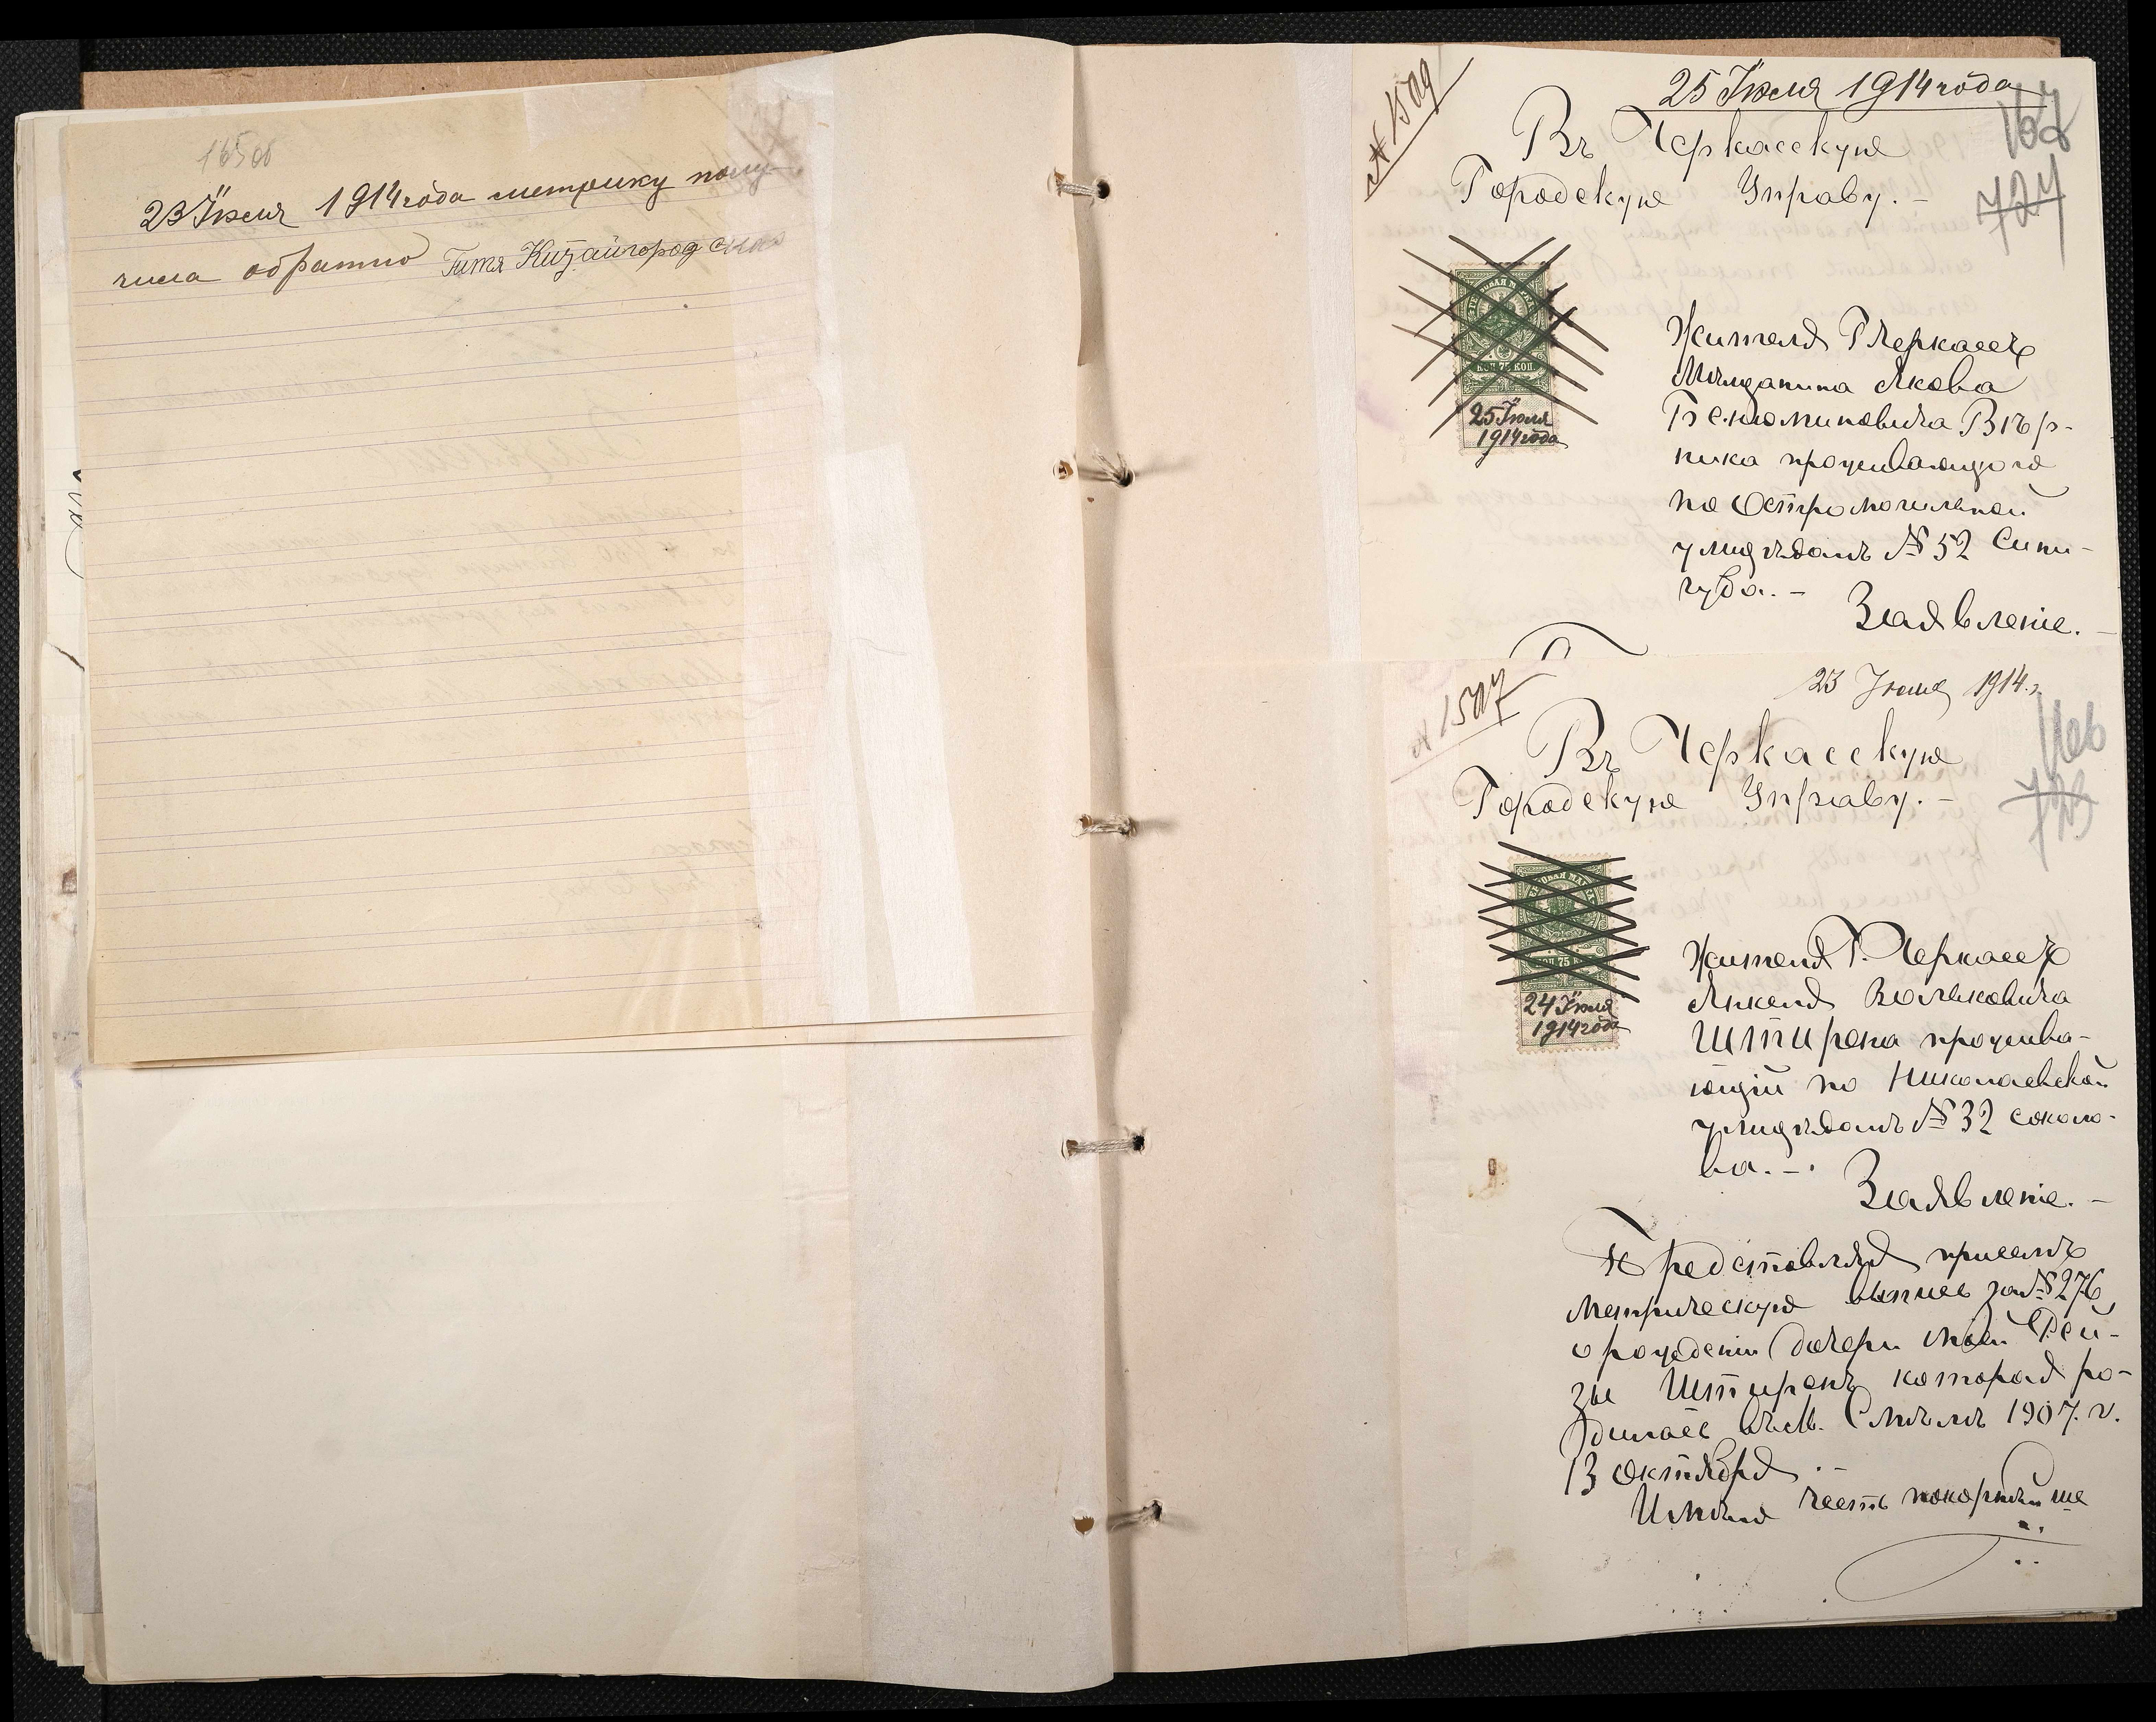 165об
23 Іюля 1914 года метрику полу-
чила обратно Гитя Китайгородская
№ 1509
25 Іюля 1914 года
167
724
Въ Черкасскую
Городскую Управу. –
ГЕРБОВАЯ МАРКА
КОП. 75 КОП.
25 Іюля
1914 года
Жителя Г Черкассъ
Мѣщанина Якова
Беньюминовича Вѣр-
ника проживающаго
по Остромогильной
улицѣ домъ № 52 Сини-
губа. –
Заявленіе. –
№ 1507
23 Іюля 1914 г.
166
723
Въ Черкасскую
Городскую Управу. –
ГЕРБОВАЯ МАРКА
КОП. 75 К
24 Іюля
1914 года
Жителя Г. Черкассъ
Янкеля Вольковича
Штирена прожива-
ющій по Николаевской
улицѣ домъ № 32 Соколо-
ва. – .
Заявленіе. –
Представляя присемъ
Метрическую выпись за № 276
о рожденіи дочери моей Рей-
зы Штиренъ которая ро-
дилась въ М. Смѣлѣ 1907. г.
13 октября . –
Имѣю честь покорнѣйше